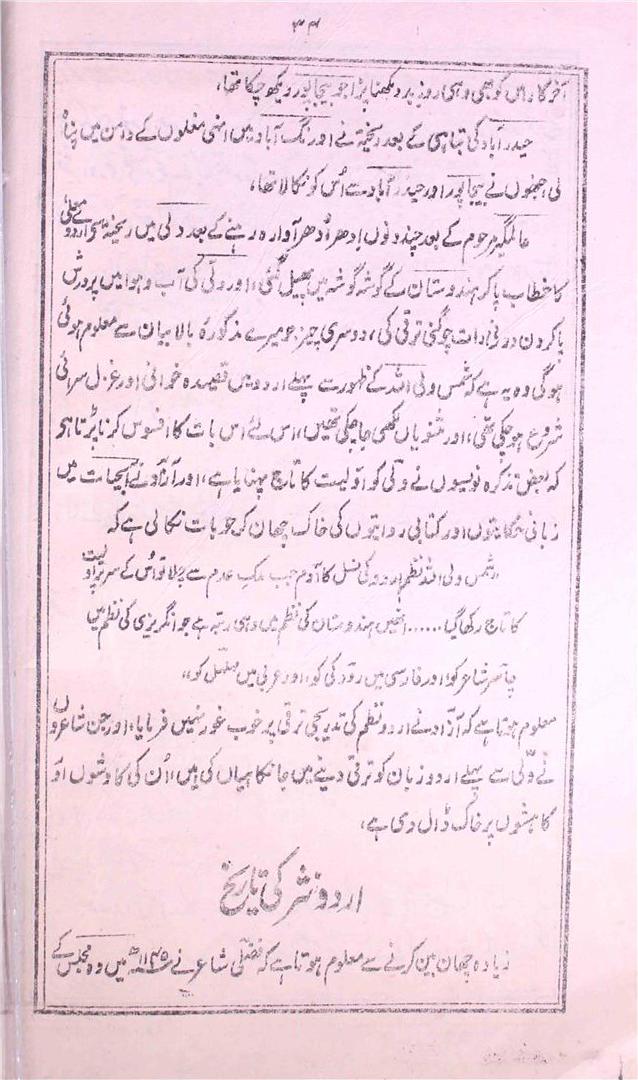 ۳۴
آخر کار اس کو بھی وہی روز بد دیکھنا پڑا جو بیجاپور دیکھ چکا تھا،
حیدرآباد کی تباہی کے بعد ریختہ نے اورنگ آباد میں انہی مغلوں کے دامن میں پناہ
لی، جنھوں نے بیجاپور اور حیدرآباد سے اُس کو نکالا تھا،
عالمگیر مرحوم کے بعد چند دنوں اِدھر اُدھر آوارہ رہنے کے بعد دلی میں ریختہ اردوئے معلّیٰ
کا خطاب پا کر ہندوستان کے گوشہ گوشہ میں پھیل گئی، اور دلّی کی آب و ہوا میں پرورش
پا کر دن دونی رات چوگنی ترقی کی، دوسری چیز جو میرے مذکورۂ بالا بیان سے معلوم ہوئی
ہوگی وہ یہ ہے کہ شمس ولی اللہ کے ظہور سے پہلے اردو میں قصیدہ خوانی اور غزل سرائی
شروع ہو چکی تھی، اور مثنویاں لکھی جا چکی تھیں، اس لئے اس بات کا افسوس کرنا پڑتا ہی
کہ بعض تذکرہ نویسوں نے ولّی کو اوّلیت کا تاج پہنایا ہے، اور آزاد نے آبحیات میں
زبانی حکایتوں اور کتابی روایتوں کی خاک چھان کر جو بات نکالی ہے کہ
"شمس ولی اللہ نظم اردو کی نسل کا آدم جب ملک عدم سے چلا تو اُس کے سر پر اولیت
کا تاج رکھا گیا...... انھیں ہندوستان کی نظم میں وہی رتبہ ہے جو انگریزی کی نظم میں
چاسر شاعر کو اور فارسی میں رودکی کو، اور عربی میں مہلہل کو"،
معلوم ہوتا ہے کہ آزاد نے اردو نظم کی تدریجی ترقی پر خوب غور نہیں فرمایا، اور جن شاعروں
نے ولّی سے پہلے اردو زبان کو ترقی دینے میں جانکاہیاں کی ہیں، اُن کی کاوشوں اور
کاہشوں پر خاک ڈال دی ہے،
اردو نثر کی تاریخ
زیادہ چھان بین کرنے سے معلوم ہوتا ہے کہ فضلی شاعر نے ۱۱۴۵ھ میں دہ مجلس کے